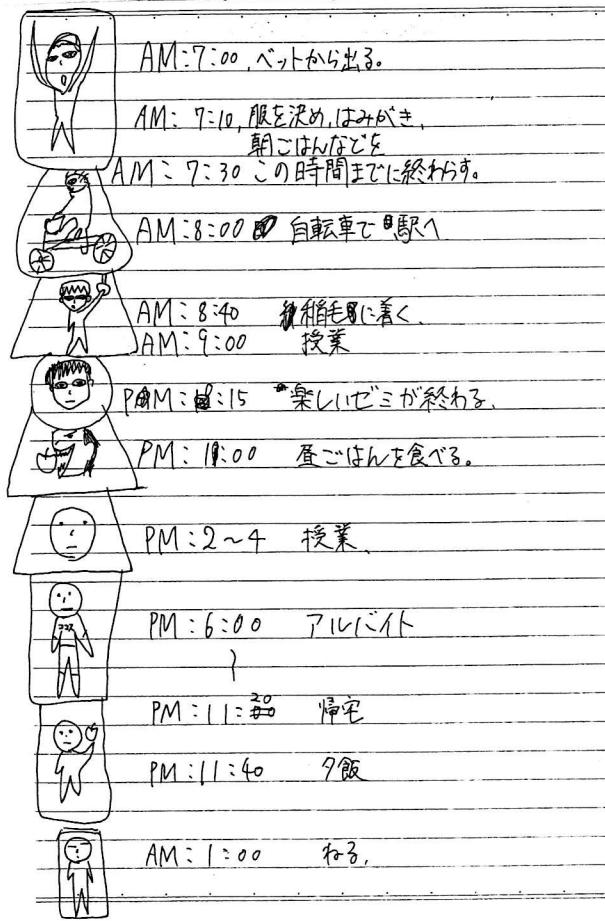 AM:7:00, ベットから出る。
AM:7:10, 服を決め, はみがき,
朝ごはんなどを
AM:7:30 この時間までに終わらす。
AM:8:00 自転車で駅へ
AM:8:40 稲毛に着く、
AM:9:00 授業
楽しいゼミが終わる、
PM:1:00 昼ごはんを食べる。
PM:2〜4 授業、
PM:6:00 アルバイト
〜
PM:11:20 帰宅
PM:11:40 夕飯
AM:1:00 ねる,